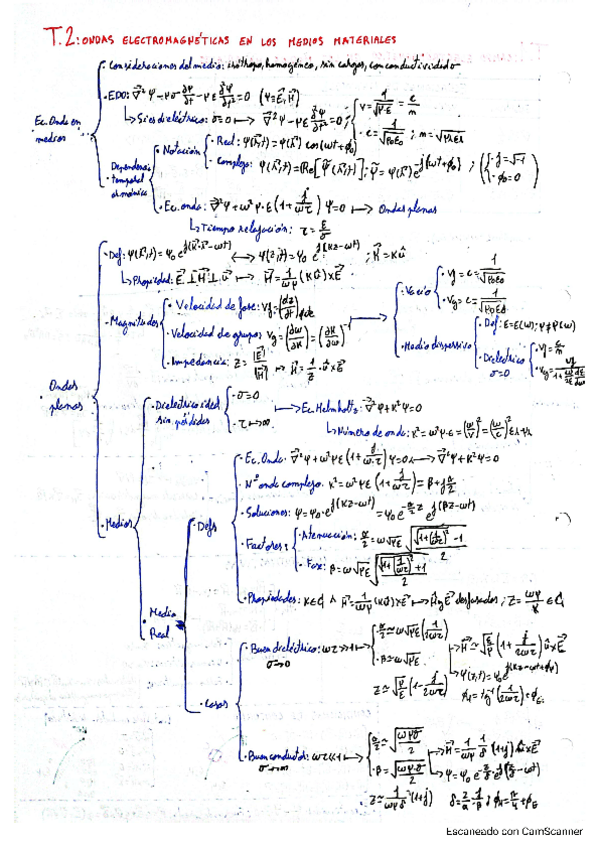 T.2: ONDAS ELECTROMAGNÉTICAS EN LOS MEDIOS MATERIALES
Ec. Onda en medios
· Consideraciones del medio: isótropo, homogéneo, sin cargas, con conductividad σ
· EDO: ∇²Ψ - μσ ∂Ψ/∂t - με ∂²Ψ/∂t² = 0 (Ψ = E⃗, H⃗)
↳ Si es dieléctrico: σ=0 ↦ ∇²Ψ - με ∂²Ψ/∂t² = 0;
· v = 1/√με = c/m
· c = 1/√μ₀ε₀ ; m =
· Dependencia temporal armónica
· Notación
· Real: Ψ(r⃗,t) = Ψ(r⃗) cos(ωt+φ₀)
· Compleja: Ψ(r⃗,t) = Re[Ψ̃(r⃗,t)]; Ψ̃ = Ψ(r⃗) e^j(ωt+φ₀) ;
· j = √-1
· φ₀=0
· Ec. onda: ∇²Ψ + ω²με (1 + j/ωτ) Ψ = 0 ↦ Ondas planas
↳ Tiempo relajación: τ = ε/σ
· Ondas planas
· Def: Ψ(r⃗,t) = Ψ₀ e^j(k⃗·r⃗-ωt) ↔ Ψ(z,t) = Ψ₀ e^j(kz-ωt) ; k⃗ = k û
↳ Propiedad: E⃗ ⊥ H⃗ ⊥ û ↦ H⃗ = 1/ωμ (k û) × E⃗
· Magnitudes
· Velocidad de fase: vf = (dz/dt) fijo
· Velocidad de grupo: vg = (∂ω/∂k) = (∂k/∂ω)⁻¹
· Impedancia: Z = |E⃗|/|H⃗| ↦ H⃗ = 1/Z · û × E⃗
· Vacío
· vf = c = 1/√μ₀ε₀
· vg = c = 1/√μ₀ε₀
· Medio dispersivo
· Def: ε = ε(ω); μ ≠ μ(ω)
· Dieléctrico σ=0
· vf = c/m
· Medios
· Dieléctrico ideal sin pérdidas
· σ=0
· τ→∞
↦ Ec. Helmholtz: ∇²Ψ + k²Ψ = 0
↳ Número de onda: k² = ω²με = (ω/v)² = (ω/c)² εr μr
· Medio Real
· Defs
· Ec. Onda: ∇²Ψ + ω²με (1 + j/ωτ) Ψ = 0 ↔ ∇²Ψ + k²Ψ = 0
· Nº onda complejo: k² = ω²με (1 + j/ωτ) = β + j α/2
· Soluciones: Ψ = Ψ₀ · e^j(kz-ωt) = Ψ₀ e^-α/2 z e^j(βz-ωt)
· Factores:
· Atenuación: α/2 = ω√με √((√(1+(1/ωτ)²) - 1)/2)
· Fase: β = ω√με √((√(1+(1/ωτ)²) + 1)/2)
· Propiedades: k ∈ ℂ ∧ H⃗ = 1/ωμ (k û) × E⃗ ↦ H⃗ y E⃗ desfasados ; Z = ωμ/k ∈ ℂ
· Casos
· Buen dieléctrico: ωτ >> 1 σ→0
· α/2 ≃ ω√με (1/2ωτ)
· β ≃ ω√με
Z ≃ √μ/ε (1 - j/2ωτ)
↦ H⃗ ≃ √ε/μ (1 + j/2ωτ) û × E⃗
· Buen conductor: ωτ << 1 σ→∞
· α/2 ≃ √ωμσ/2
· β = √ωμσ/2
↦ H⃗ = 1/ωμ 1/δ (1+j) û × E⃗
↦ Ψ = Ψ₀ e^-z/δ e^j(z/δ-ωt)
δ = 2/α = 1/β ; φH = π/4 + φE
Escaneado con CamScanner